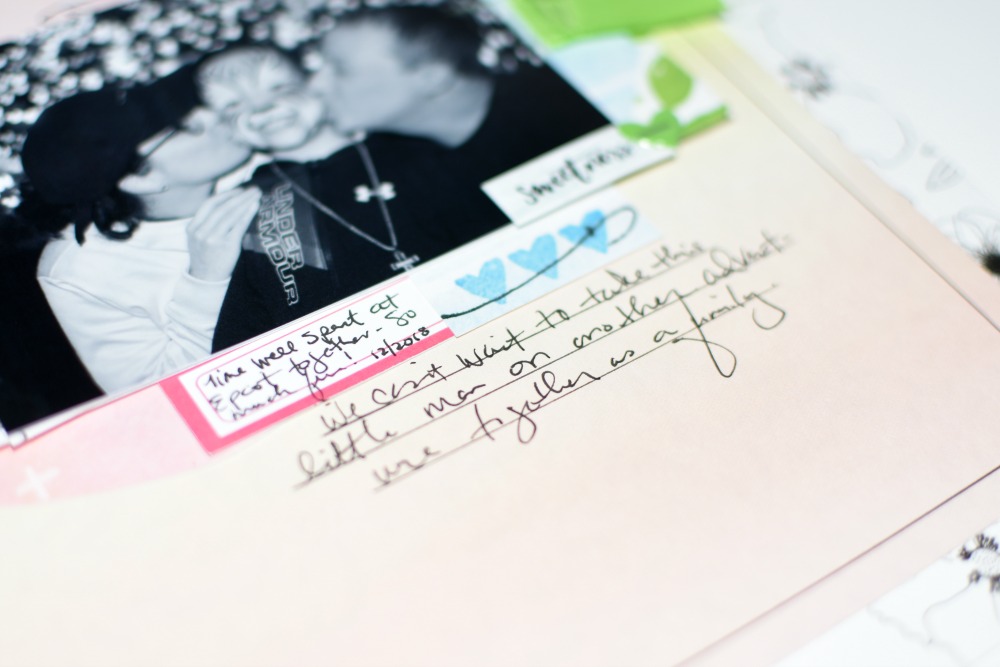 UNDER
ARMOUR
sweetness
Time well spent at
Epcot together - so
much fun! 12/2018
We can't wait to take this
little man on another advent-
ure together as a family.